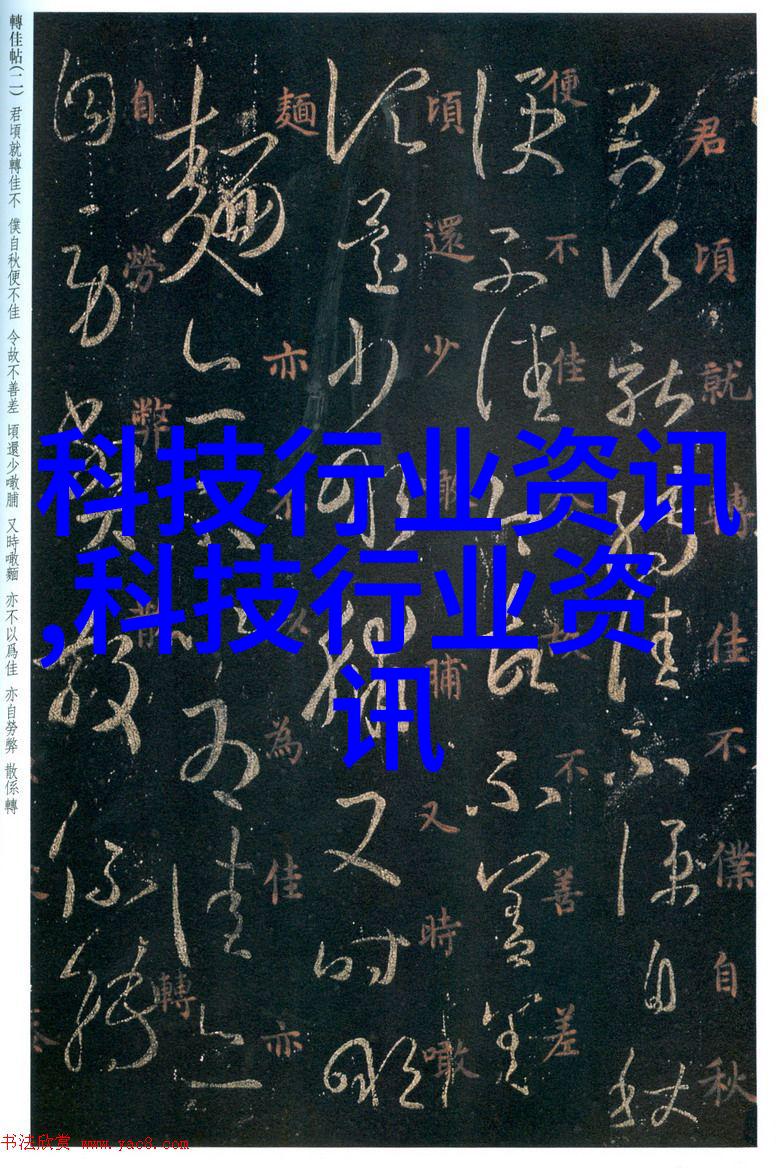 轉佳帖(二) 君頃就轉佳不 僕自秋便不佳 令故不善差 頃還少噉脯 又時噉麵 亦不以爲佳 亦自勞弊 散係轉
君頃就轉佳不僕自秋
便不佳令故不善差
頃還少噉脯又時噉
麵亦不以為佳亦
自勞弊散係轉
科技行业资讯
,科技行业资
讯
书法欣赏 www.yac8.com